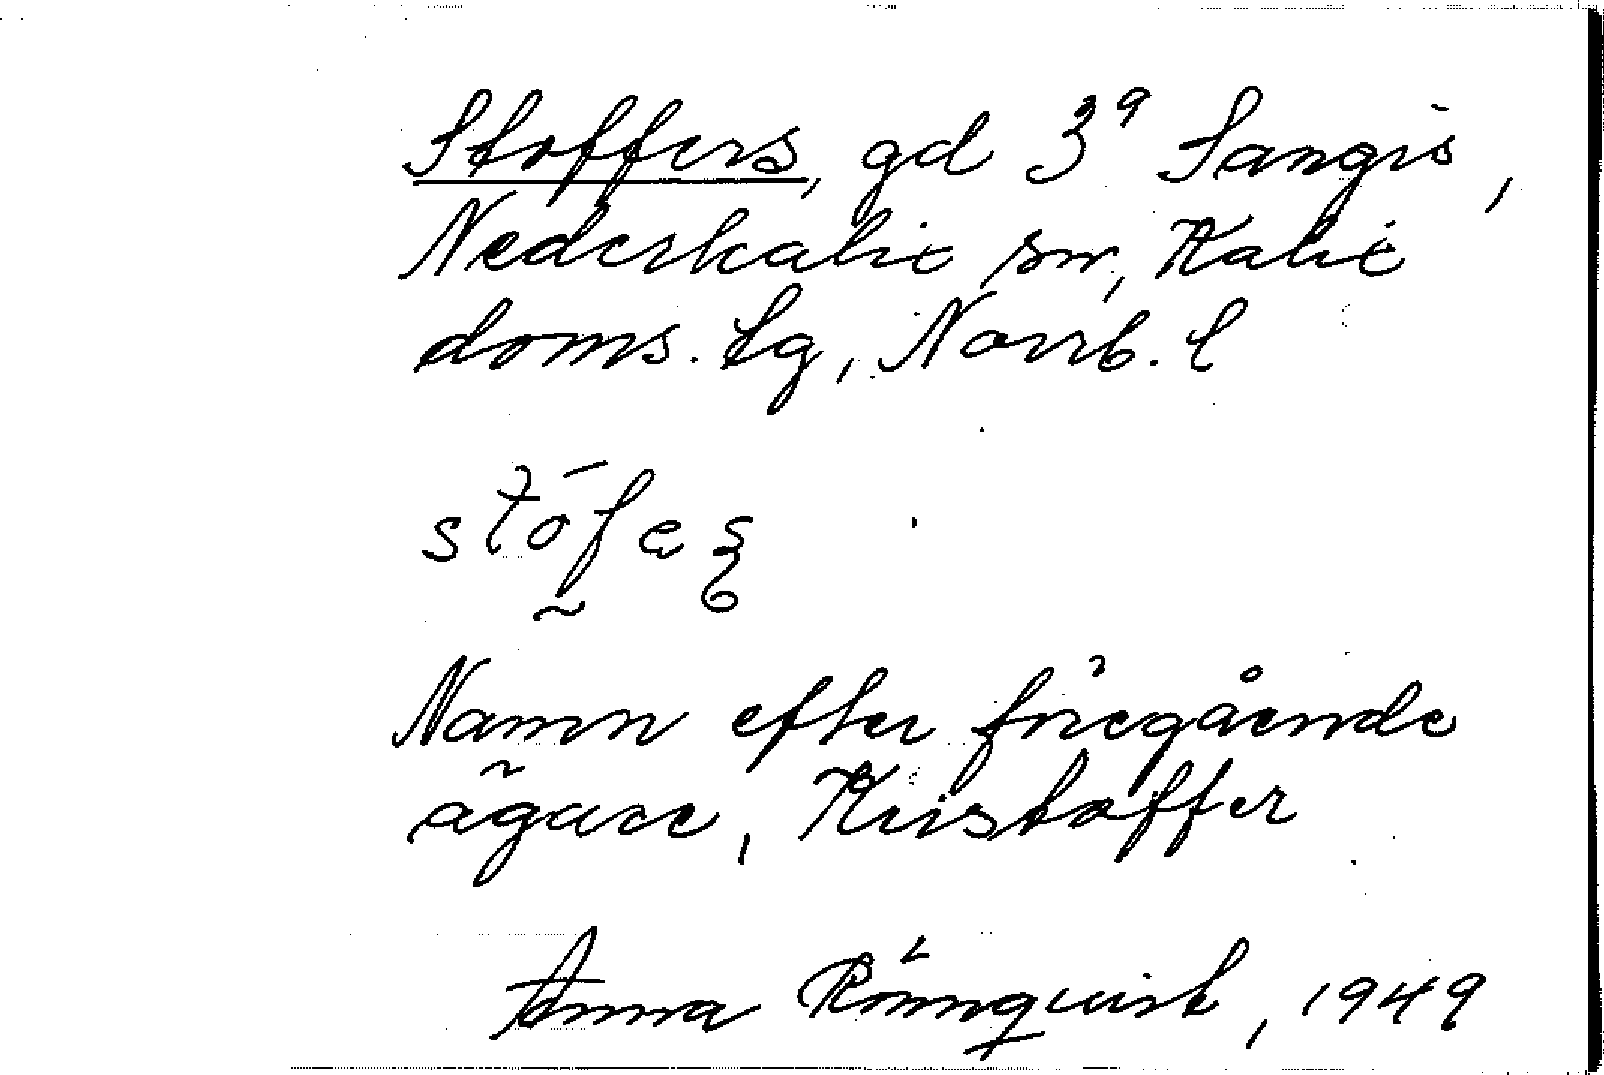 Stoffers, gd 3⁹ Sangis,
Nederkalix sn, Kalix
doms. lg, Norrb. l
Namn efter föregående
ägare, Kristoffer
Anna Rönnquist, 1949